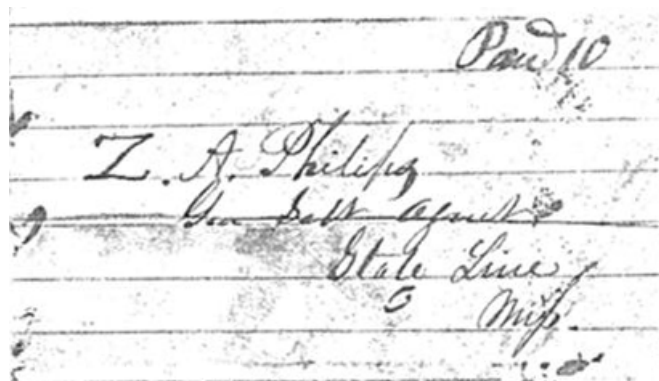 Paid 10
Z. A. Philips
Gen Salt Agent
State Line
5
Miss.